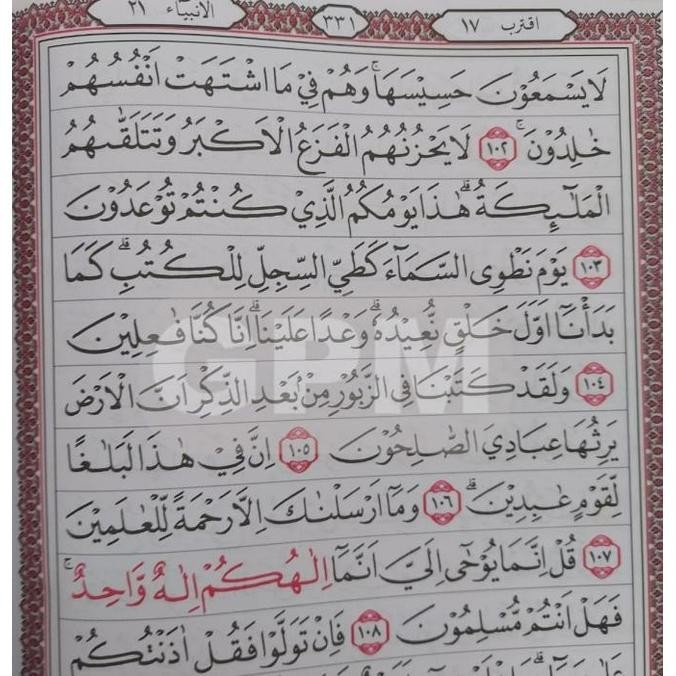 الانبياء ٢١
٣٣١
اقترب ١٧
لَا يَسْمَعُوْنَ حَسِيْسَهَاۚ وَهُمْ فِيْ مَا اشْتَهَتْ اَنْفُسُهُمْ
خٰلِدُوْنَۚ ١٠٢ لَا يَحْزُنُهُمُ الْفَزَعُ الْاَكْبَرُ وَتَتَلَقّٰىهُمُ
الْمَلٰۤىِٕكَةُۗ هٰذَا يَوْمُكُمُ الَّذِيْ كُنْتُمْ تُوْعَدُوْنَ
١٠٣ يَوْمَ نَطْوِى السَّمَاۤءَ كَطَيِّ السِّجِلِّ لِلْكُتُبِۗ كَمَا
بَدَأْنَآ اَوَّلَ خَلْقٍ نُّعِيْدُهٗۗ وَعْدًا عَلَيْنَاۗ اِنَّا كُنَّا فٰعِلِيْنَ
١٠٤ وَلَقَدْ كَتَبْنَا فِى الزَّبُوْرِ مِنْۢ بَعْدِ الذِّكْرِ اَنَّ الْاَرْضَ
يَرِثُهَا عِبَادِيَ الصّٰلِحُوْنَ ١٠٥ اِنَّ فِيْ هٰذَا لَبَلٰغًا
لِّقَوْمٍ عٰبِدِيْنَۗ ١٠٦ وَمَآ اَرْسَلْنٰكَ اِلَّا رَحْمَةً لِّلْعٰلَمِيْنَ
١٠٧ قُلْ اِنَّمَا يُوْحٰٓى اِلَيَّ اَنَّمَآ اِلٰهُكُمْ اِلٰهٌ وَّاحِدٌۚ
فَهَلْ اَنْتُمْ مُّسْلِمُوْنَ ١٠٨ فَاِنْ تَوَلَّوْا فَقُلْ اٰذَنْتُكُمْ
GPM